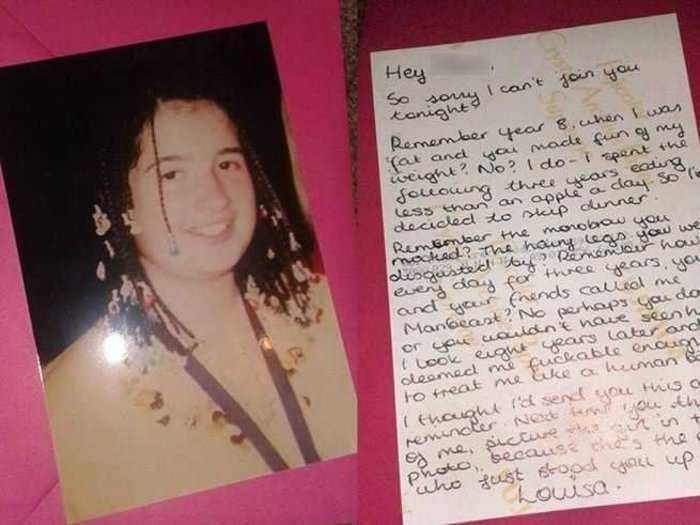 Hey ,
So sorry I can't join you
tonight
Remember year 8, when I was
fat and you made fun of my
weight? No? I do - I spent the
following three years eating
less than an apple a day. So I
decided to skip dinner.
Remember the monobrow you
mocked? The hairy legs you we
disgusted by? Remember how
every day for three years, you
and your friends called me
Manbeast? No perhaps you do
or you wouldn't have seen h
I look eight years later and
deemed me fuckable enough
to treat me like a human
I thought I'd send you this a
reminder. Next time you th
of me, picture the girl in t
photo, because she's the
who just stood you up
Louisa.